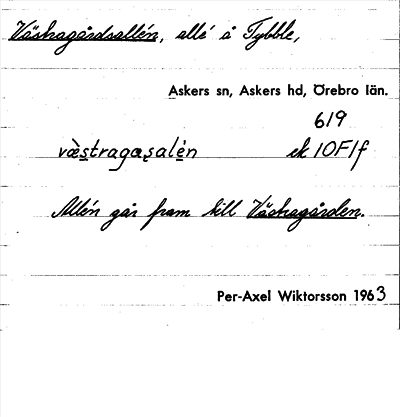 Västragårdsallén, allé å Tybble,
Askers sn, Askers hd, Örebro län.
619
væ̀stragaṣalén ek 10F1f
Allén går fram till Västragården.
Per-Axel Wiktorsson 1963